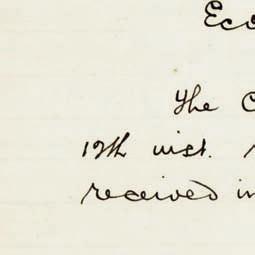 Eco
The C
19th inst.
received in